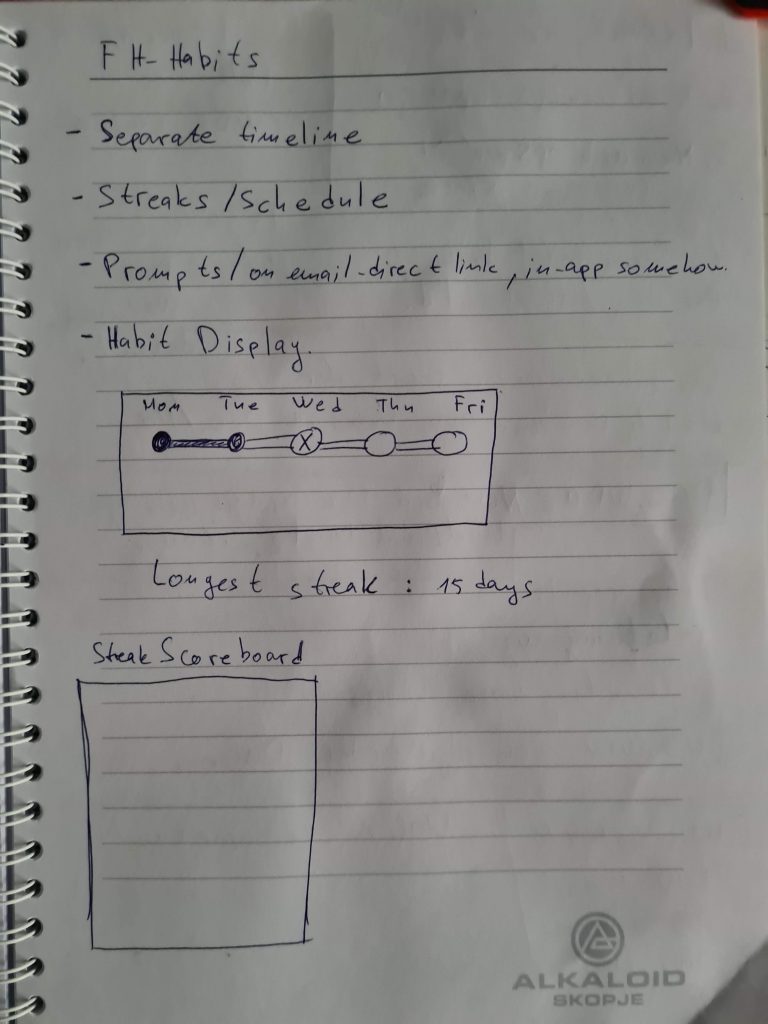 FH-Habits
- Separate timeline
- Streaks/Schedule
- Prompts/on email-direct link, in-app somehow.
- Habit Display.
Mon Tue Wed Thu Fri
X
Longest streak: 15 days
Streak Scoreboard
ALKALOID
SKOPJE